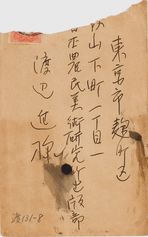 東京市麹町区
内山下町一丁目一
日本農民美術研究所出版部
渡辺進様
渡131-8